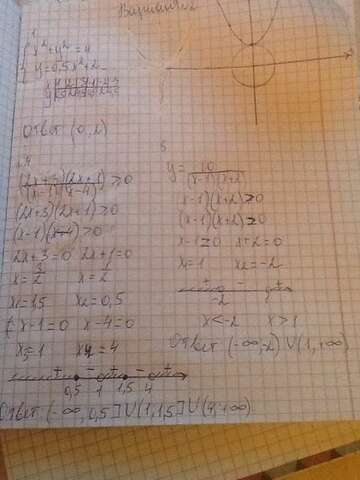 Вариант 2
1
{ x² + y² = 4
y = 0,5x² + 2
Ответ (0, 2)
4
(2x+3)(2x+1)/(x-1)(x-4) ≥ 0
(2x+3)(2x+1) ≥ 0
(x-1)(x-4) > 0
2x+3=0 2x+1=0
x = 3/2 x = 1/2
x₁ = 1,5 x₂ = 0,5
x-1=0 x-4=0
x₃ = 1 x₄ = 4
+ - + - +
0,5 1 1,5 4
Ответ (-∞, 0,5] ∪ (1, 1,5] ∪ (4, +∞)
5
y = 10/(x-1)(x+2)
x-1)(x+2) ≥ 0
(x-1)(x+2) ≥ 0
x-1=0 x+2=0
x₁=1 x₂=-2
+ - +
-2
x<-2 x>1
Ответ (-∞, -2) ∪ (1, +∞)